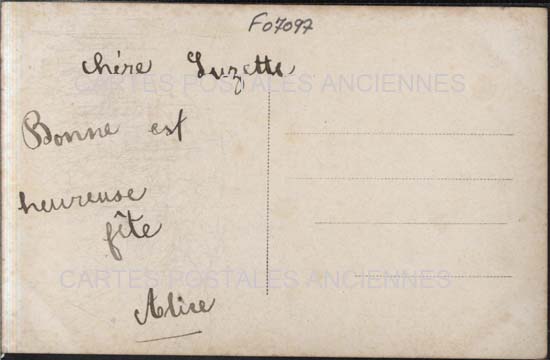 F07097
chére Suzette
CARTES POSTALES ANCIENNES
Bonne est
heureuse
fête
CARTES POSTALES ANCIENNES
Alice